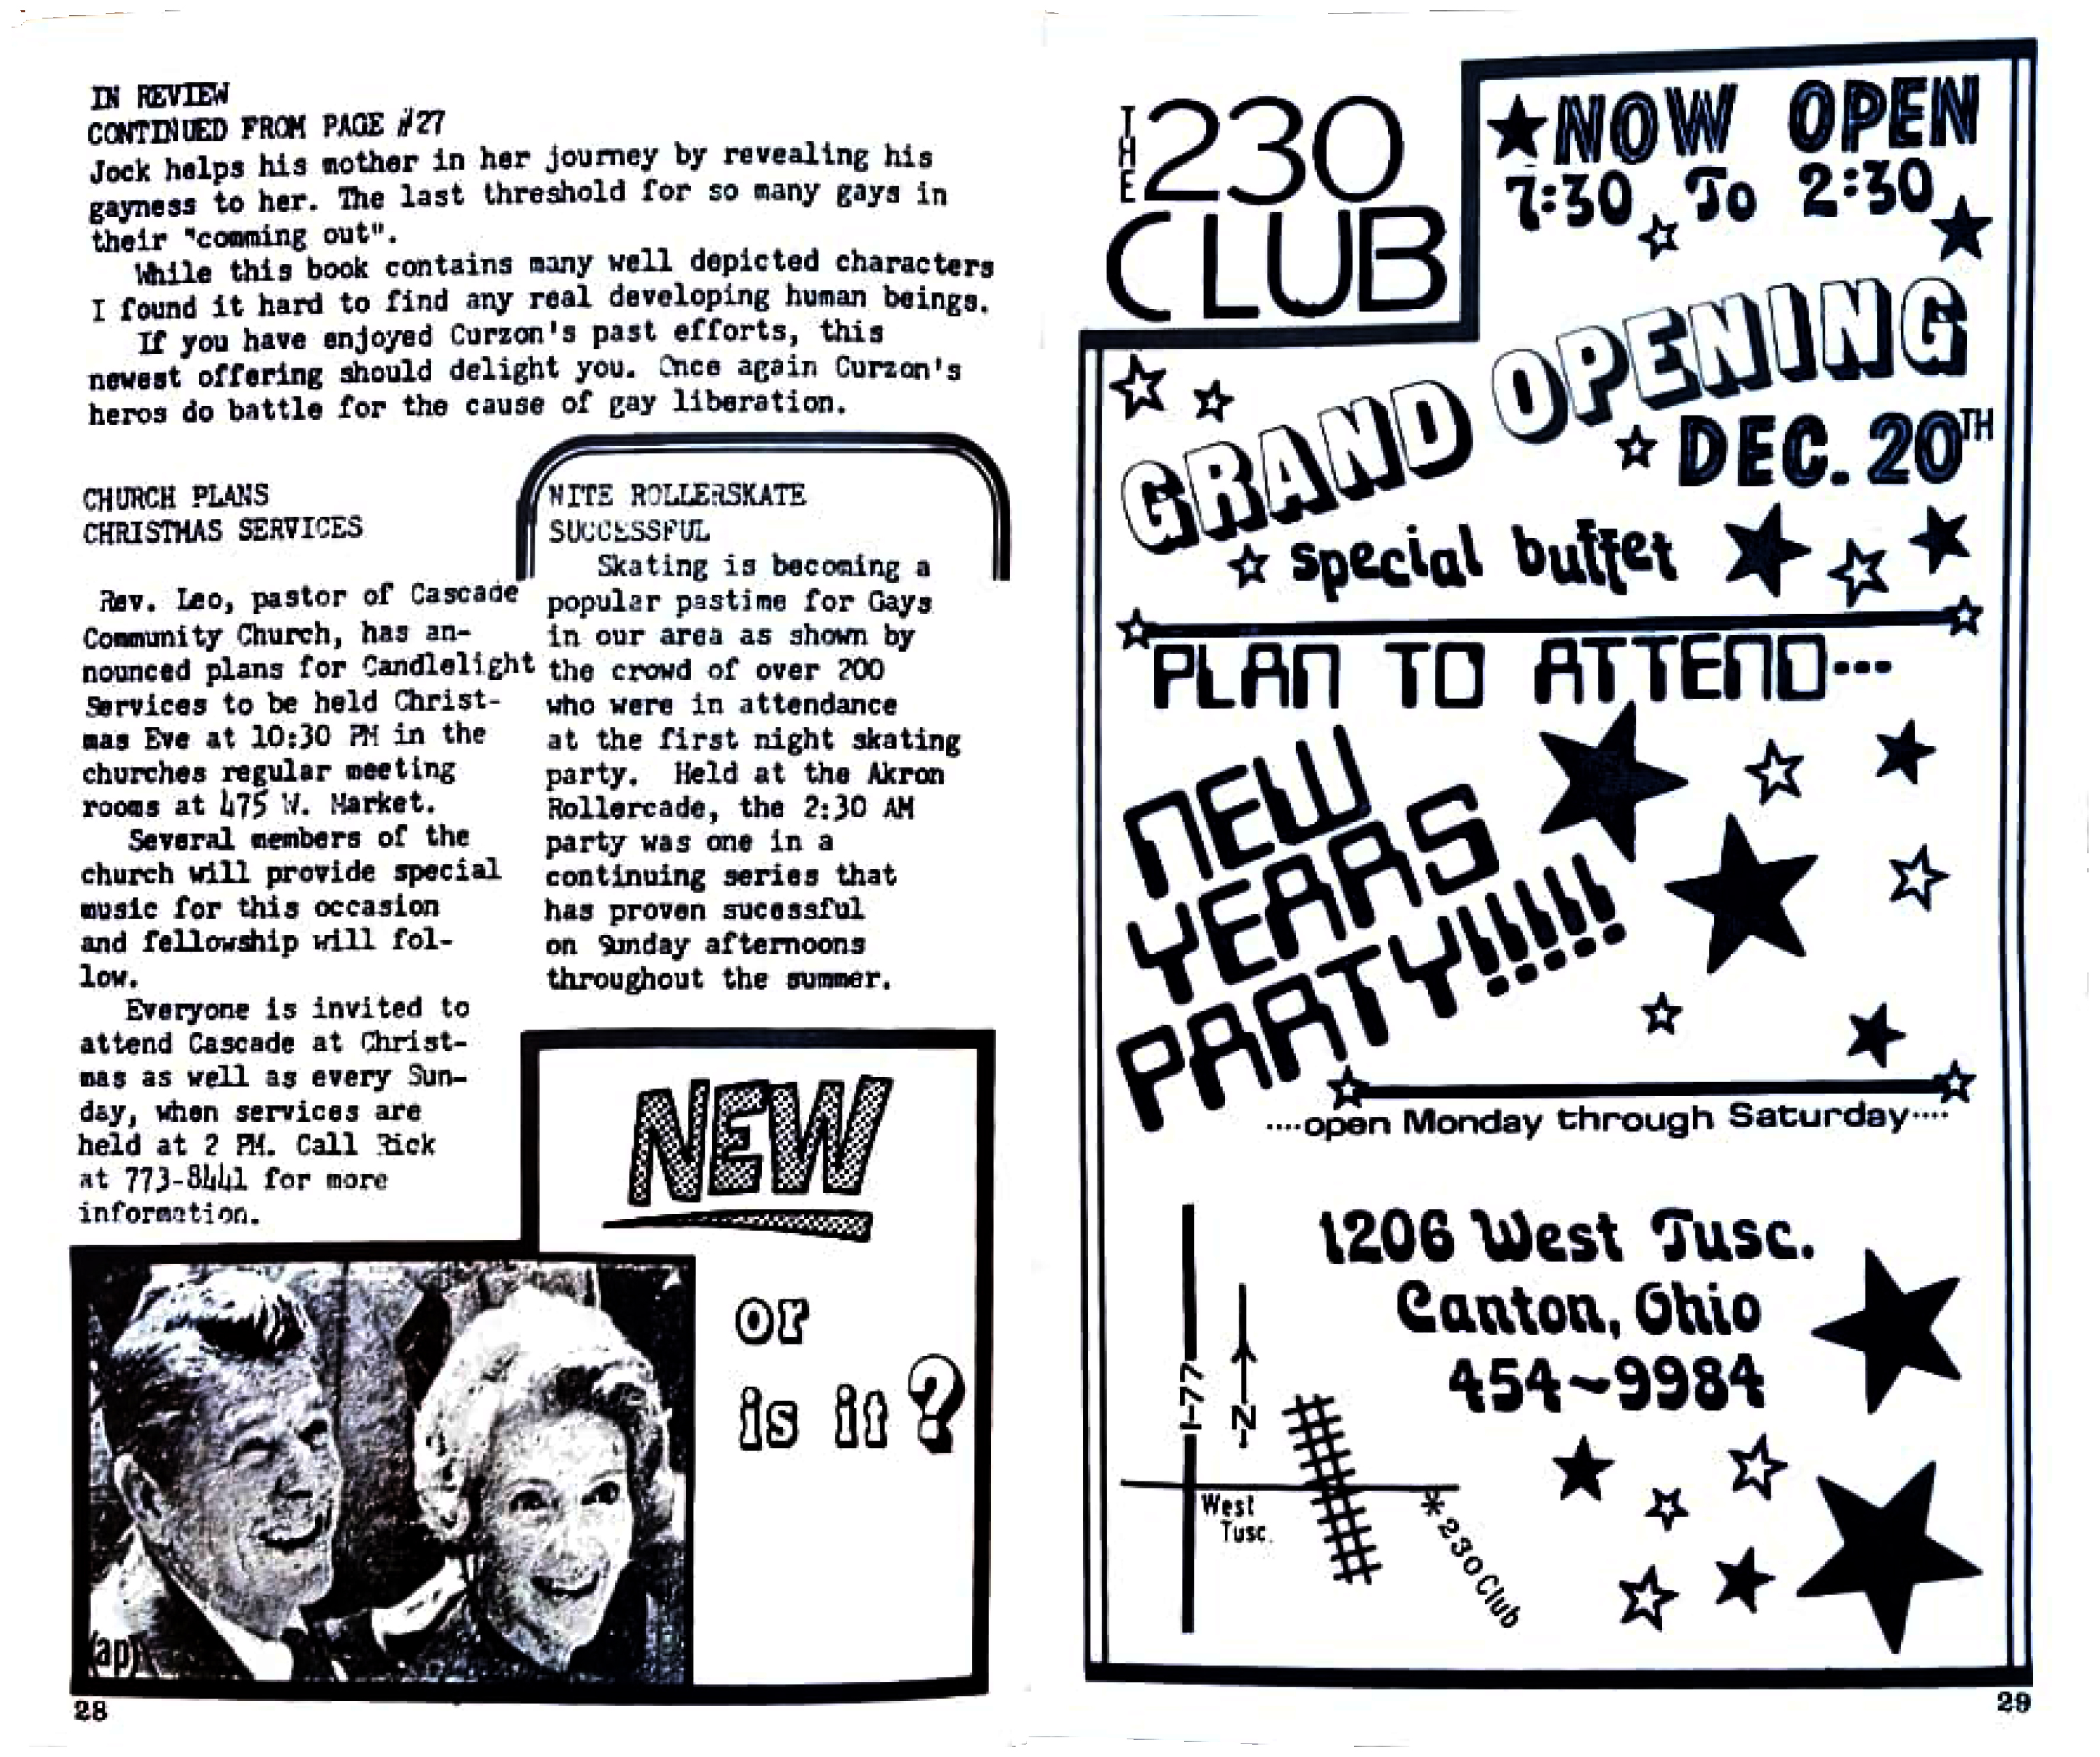 IN REVIEW
CONTINUED FROM PAGE #27
Jock helps his mother in her journey by revealing his
gayness to her. The last threshold for so many gays in
their "comming out".
While this book contains many well depicted characters
I found it hard to find any real developing human beings.
If you have enjoyed Curzon's past efforts, this
newest offering should delight you. Once again Curzon's
heros do battle for the cause of gay liberation.
CHURCH PLANS
CHRISTMAS SERVICES
Rev. Leo, pastor of Cascade
Community Church, has an-
nounced plans for Candlelight
Services to be held Christ-
mas Eve at 10:30 PM in the
churches regular meeting
rooms at 475 W. Market.
Several members of the
church will provide special
music for this occasion
and fellowship will fol-
low.
Everyone is invited to
attend Cascade at Christ-
mas as well as every Sun-
day, when services are
held at 2 PM. Call Rick
at 773-8441 for more
information.
NITE ROLLERSKATE
SUCCESSFUL
Skating is becoming a
popular pastime for Gays
in our area as shown by
the crowd of over 200
who were in attendance
at the first night skating
party. Held at the Akron
Rollercade, the 2:30 AM
party was one in a
continuing series that
has proven sucessful
on Sunday afternoons
throughout the summer.
NEW
or
is it?
(ap)
28
THE 230
CLUB
NOW OPEN
7:30 To 2:30
GRAND OPENING
DEC. 20TH
special buffet
PLAN TO ATTEND...
NEW
YEARS
PARTY!!!!!!
....open Monday through Saturday....
1206 West Tusc.
Canton, Ohio
454~9984
I-77
N
West
Tusc.
*230 Club
29